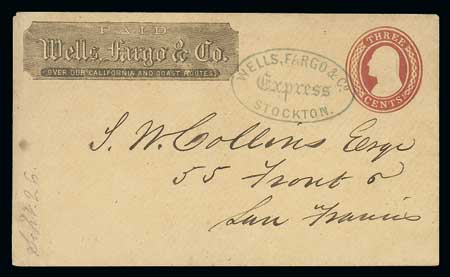 PAID
Wells, Fargo & Co.
OVER OUR CALIFORNIA AND COAST ROUTES
WELLS, FARGO & Co.
Express
STOCKTON.
THREE
CENTS
S. W. Collins Esqr
55 Front
San Francis
Sept 26.